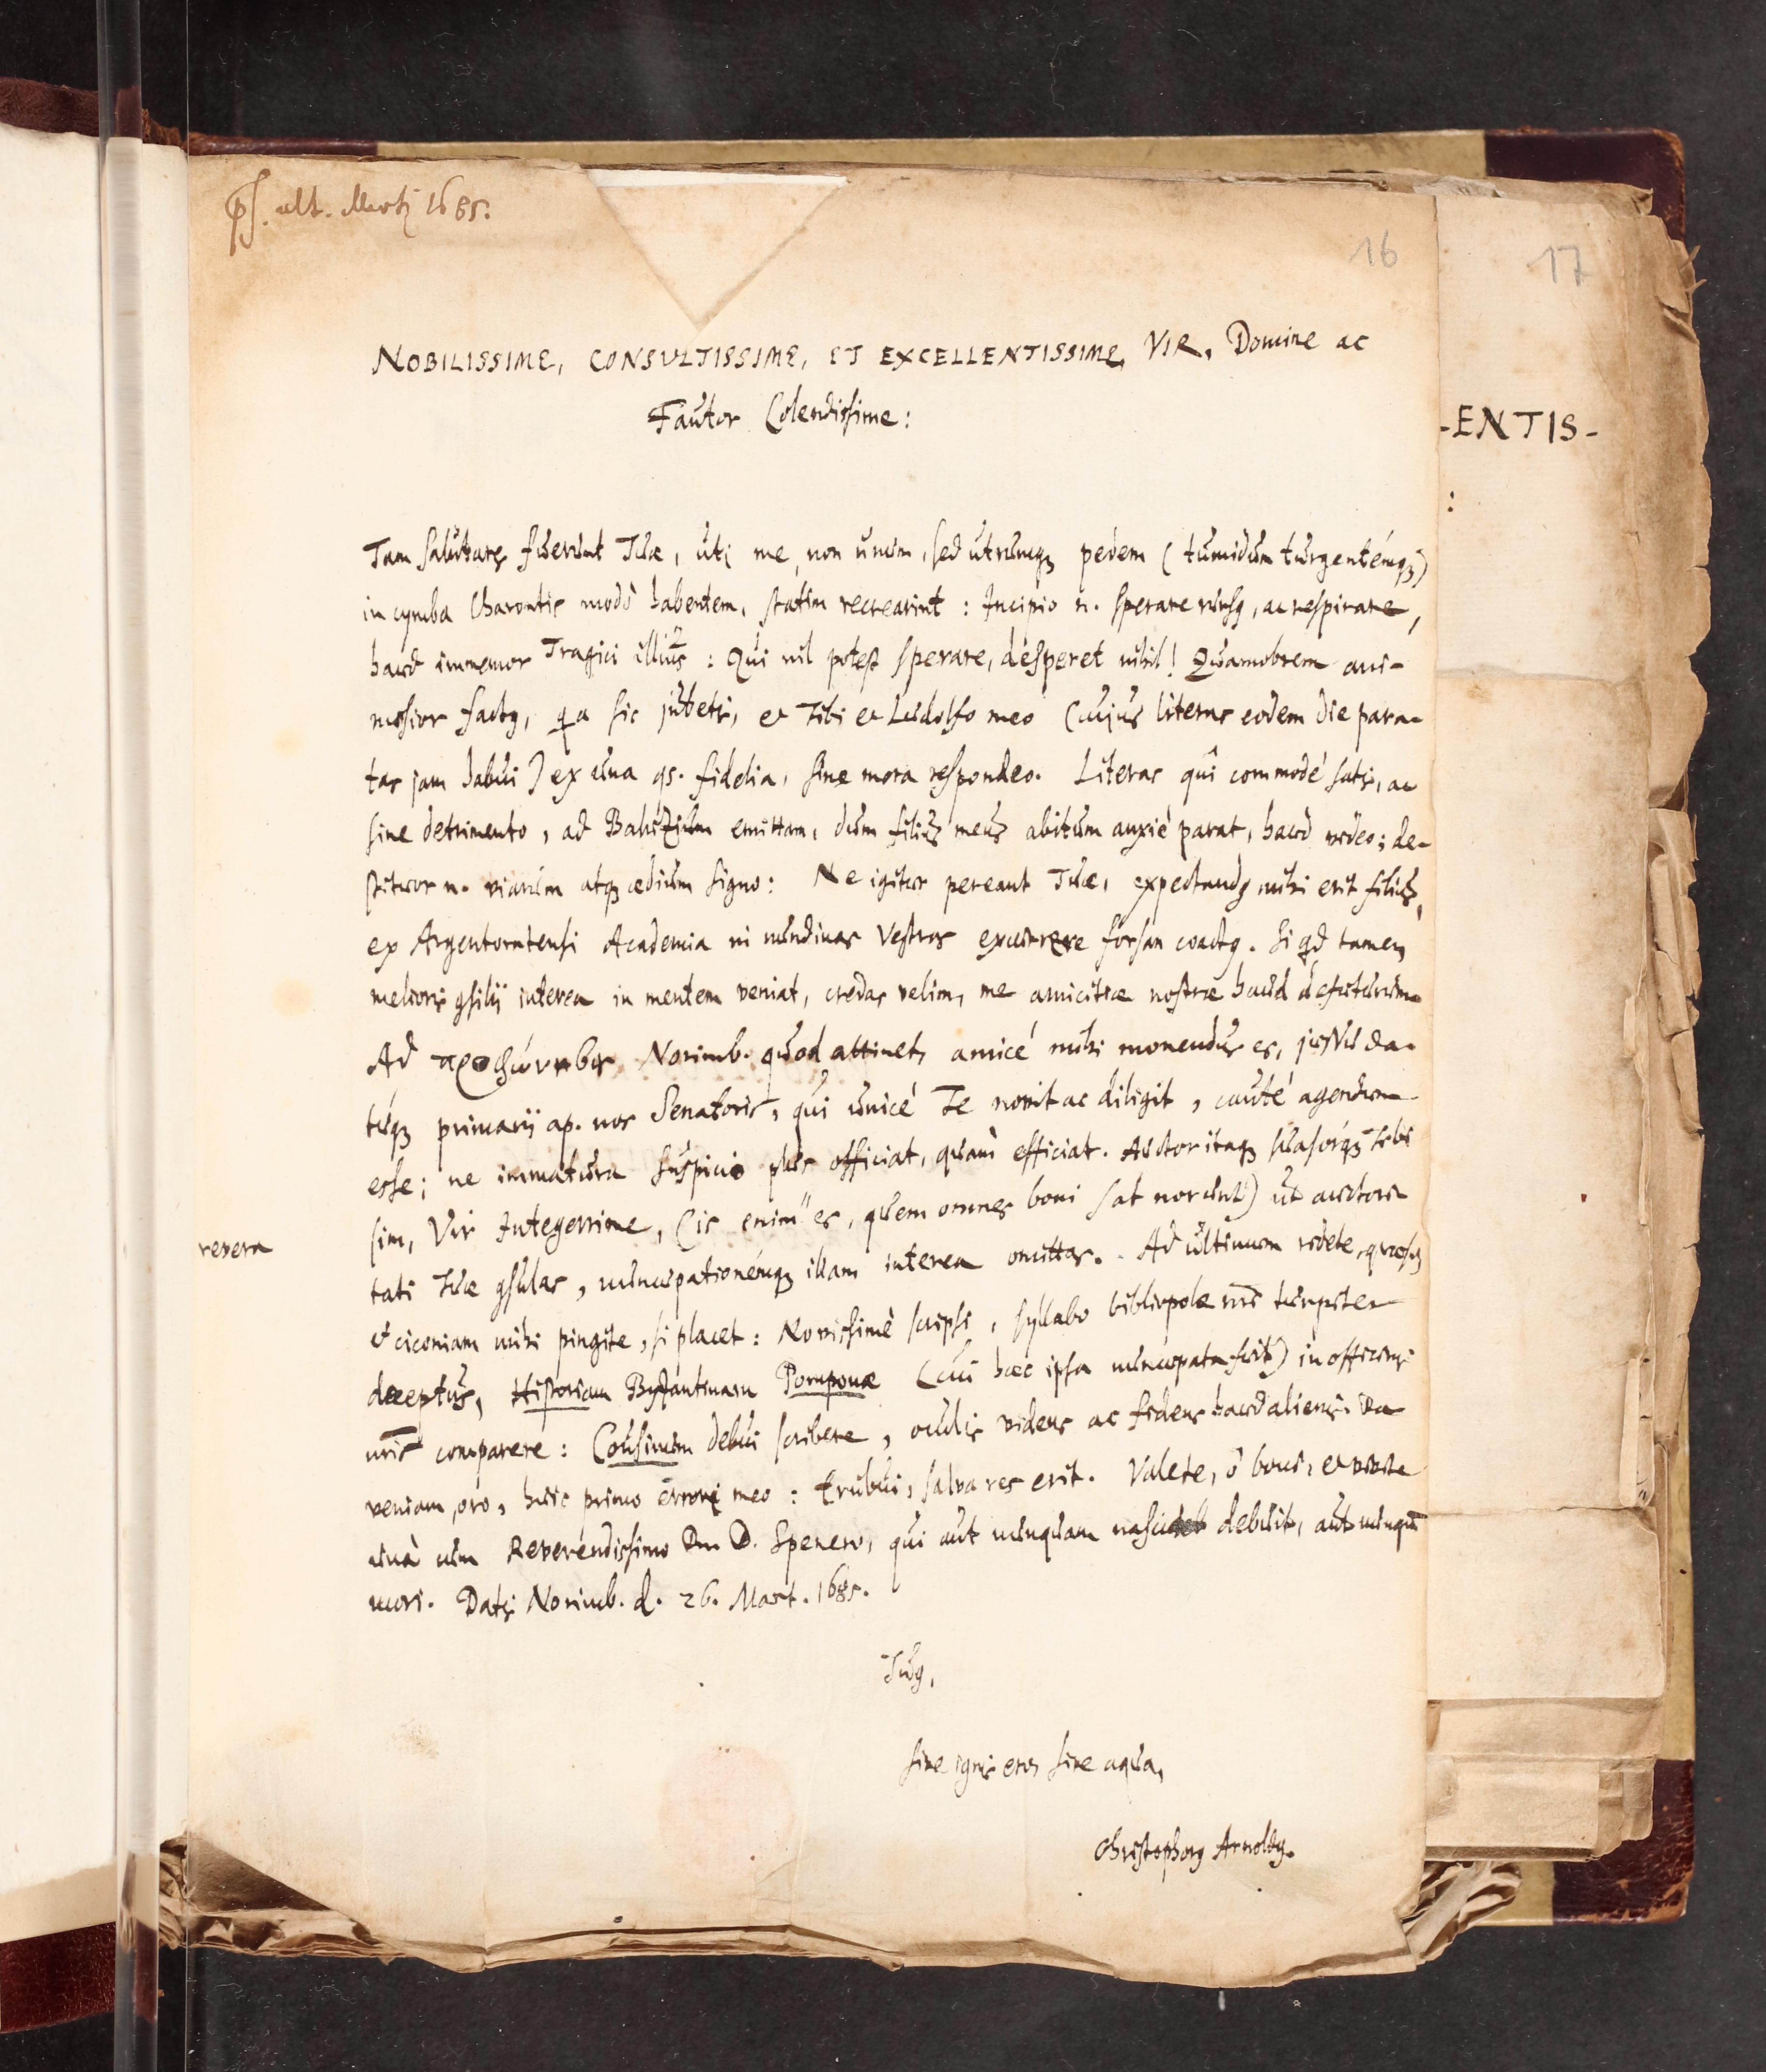 ps. ult. Martij 1685.
16
17
NOBILISSIME, CONSVLTISSIME, ET EXCELLENTISSIME VIR, Domine ac
Fautor Colendissime:
-ENTIS-
:
Tam salutares fuerunt Tuæ, uti me, non unum, sed utrumq; pedem (tumidum turgentémq;)
in cymba Charontis modò habentem, statim recrearint: Incipio n. sperare rursq, ac respirare,
haud immemor Tragici illius: Qui nil potest sperare, desperet nihil! Quamobrem ani-
mosior factq, qa sic jubetis, et Tibi et Ludolfo meo (cujus literas eodem die para-
tas jam habui) ex una qs. fidelia, sine mora respondeo. Literas quî commodè satis, ac
sine detrimento, ad Baluzium emittam, dum filius meus abitum anxiè parat, haud video; de-
stituor n. viarum atq; ædium signo: Ne igitur pereant Tuæ, expectandq mihi erit filius,
ex Argentoratensi Academia in nundinas Vestras excurrere forsan coactq. Si qd tamen
melioris gsilij interea in mentem veniat, credas velim, me amicitiæ nostræ haud defuturum.
Ad Norimb. quod attinet, amicè mihi monendus es, jussu da-
túq; primarij ap. nos Senatoris, qui unicè Te novit ac diligit, cautè agendum
esse; ne immatura suspicio plus officiat, quàm efficiat. Auctor itaq; suasórq; Tibi
sim, Vir Integerrime, (is enim" es, quem omnes boni sat norunt) ut auctori-
revera
tati Tuæ gsulas, nuncupationémq; illam interea omittas. Ad ultimum videte, quæso,
et ciconiam mihi pingite, si placet: Novissimè scripsi, syllabo bibliopolæ nri turpiter
deceptus, Historiam Byzantinam Pomponæ (cui hæc ipsa nuncupata fuit) in officinis
nris comparere: Cousinum debui scribere, oculis videns ac fidens haud alienis. Da
veniam, oro, huic primo errori meo: Erubui, salva res erit. Valete, ô boni, et vivite
unà cum Reverendissimo Dn. D. Spenero, qui aut nunquam nasci debuit, aut nunqu̅
mori. Datis Norimb. d. 26. Mart. 1685.
Tuq,
sive ignis ero, sive aqua,
Christophorq Arnoldq.